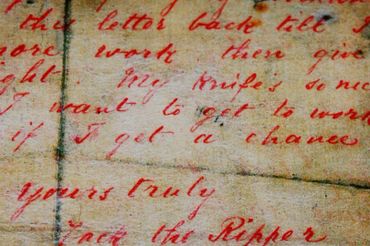 this letter back till I
more work then give
ight. My knife's so nice
I want to get to work
if I get a chance
Yours truly
Jack the Ripper